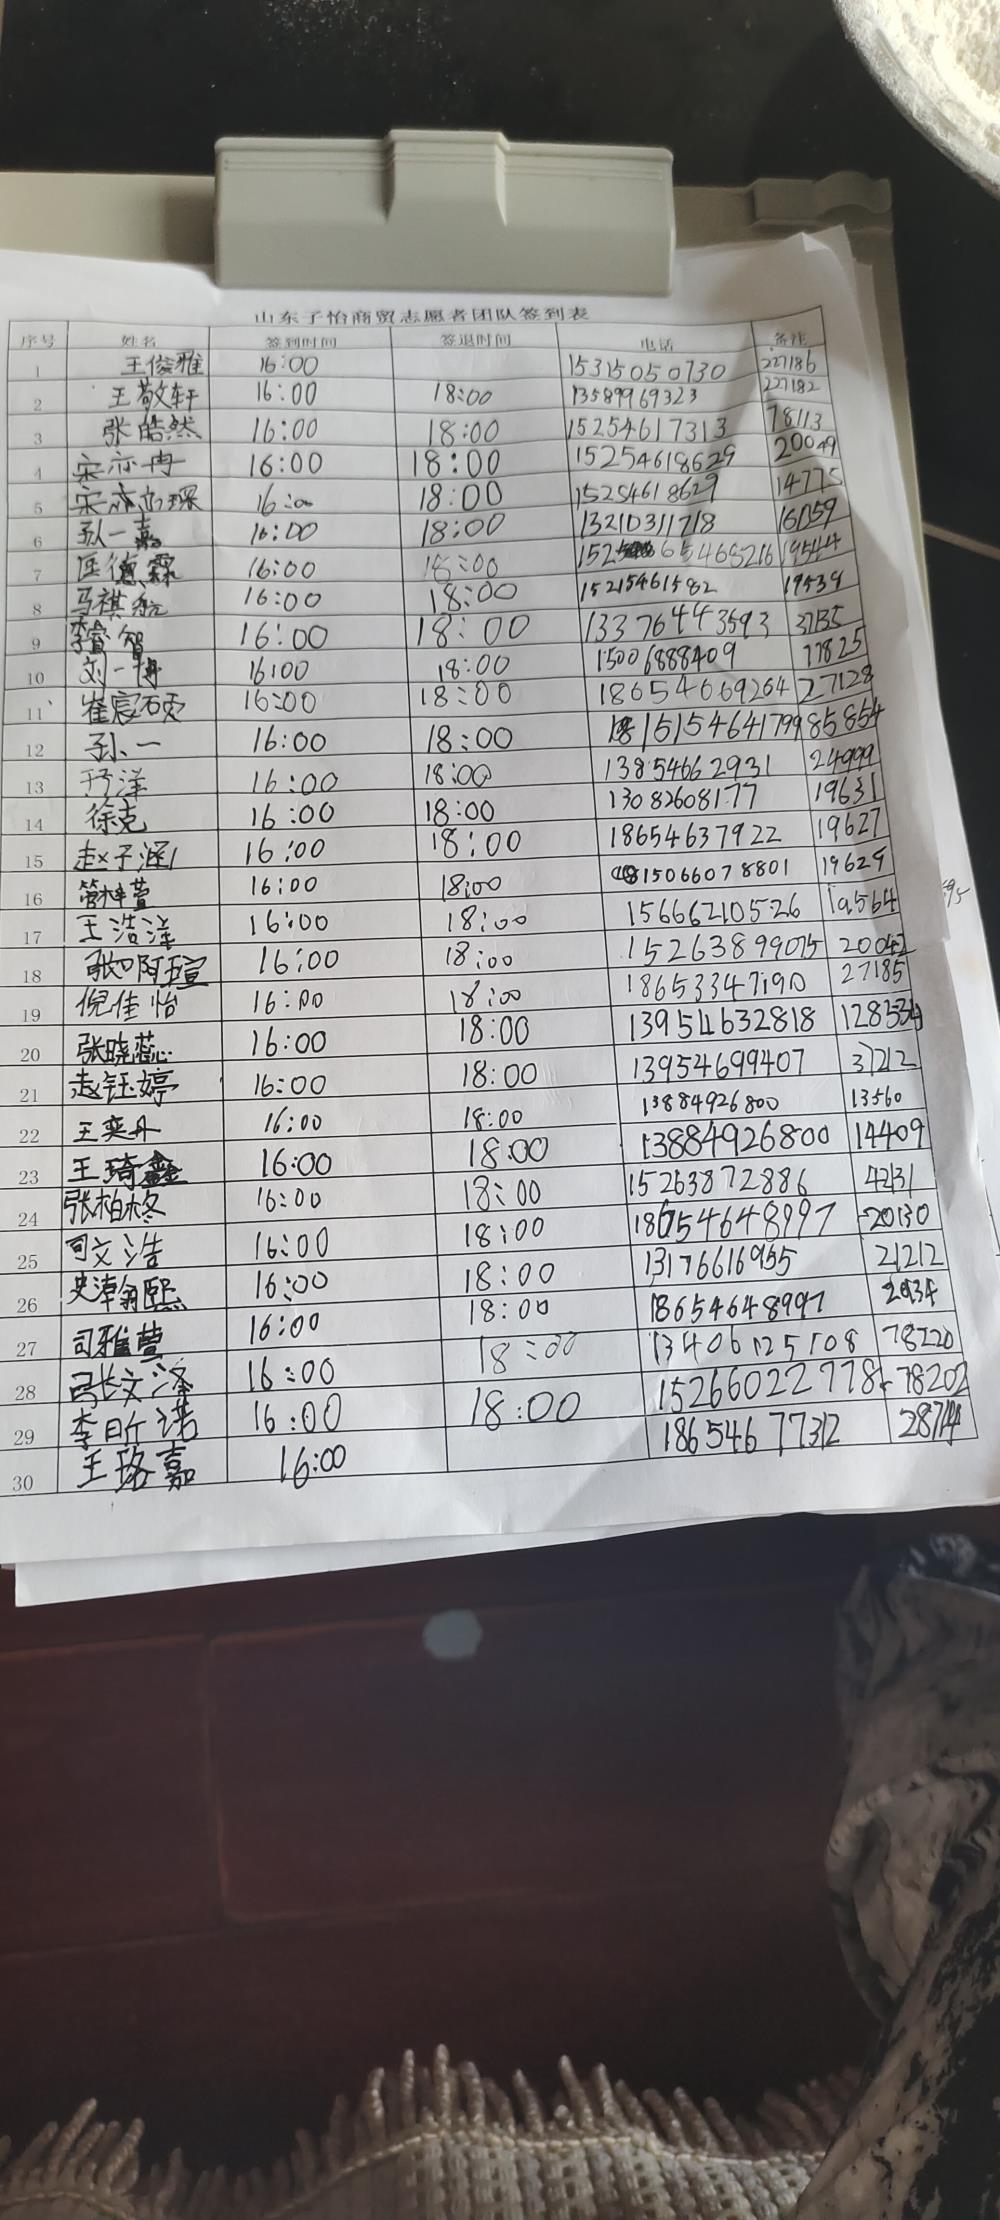 山东子怡商贸志愿者团队签到表
序号 姓名 签到时间 签退时间 电话 备注
1 王俊雅 16:00 15315050730 227186
2 王敬轩 16:00 18:00 13589969323 227182
3 张皓然 16:00 18:00 15254617313 78113
4 宋亦冉 16:00 18:00 15254618629 20049
5 宋亦琛 16:00 18:00 15254618629 14775
6 孙一嘉 16:00 18:00 13210311718
7 匡德霖 16:00 18:00 19544
8 马祺航 16:00 18:00 15215461582 19539
9 李睿智 16:00 18:00 13376443593
10 刘一 16:00 18:00 15006888409 77825
11 崔宸硕 16:00 18:00 18654669264 27128
12 孙一 16:00 18:00 15154641799 85854
13 于洋 16:00 18:00 13854662931 24999
14 徐克 16:00 18:00 13082608177 19631
15 赵子涵 16:00 18:00 18654637922 19627
16 管梓萱 16:00 18:00 15066078801 19629
17 王浩洋 16:00 18:00 15666210526 19564
18 张 瑄 16:00 18:00 15263899075 20042
19 倪佳怡 16:00 18:00 18653347190 27185
20 张晓蕊 16:00 18:00 13954632818 128534
21 赵钰婷 16:00 18:00 13954699407 37212
22 王奕丹 16:00 18:00 13884926800 13560
23 王琦鑫 16:00 18:00 13884926800 14409
24 张柏柊 16:00 18:00 15263872886 42131
25 司文浩 16:00 18:00 18654648997 20130
26 史漳翰熙 16:00 18:00 13176616955 21212
27 司雅萱 16:00 18:00 18654648997
28 张文泽 16:00 18:00 13406125108 78220
29 李昕诺 16:00 18:00 15266022778 78202
30 王珞嘉 16:00 18654677312 28714